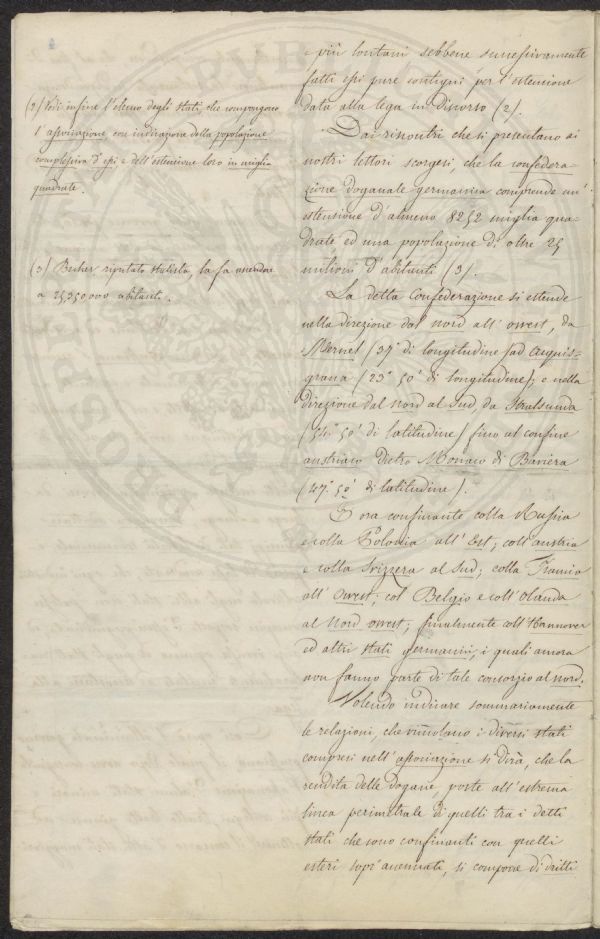 e più lontani sebbene successivamente
fatti essi pure contigui per l'estensione
data alla lega in discorso (2).
Dai riscontri che si presentano ai
nostri lettori scorgesi, che la confedera-
zione doganale germanica comprende un'
estensione d'almeno 8252 miglia qua-
drate ed una popolazione di oltre 25
milioni d'abitanti (3).
La detta Confederazione si estende
nella direzione dal nord all'owest, da
Memel (37° di longitudine) ad Acquis-
grana (23° 50' di longitudine); e nella
direzione dal Nord al Sud, da Stralsunda
(54° 50' di latitudine) fino al confine
austriaco dietro Monaco di Baviera
(47° 50' di latitudine).
È ora confinante colla Russia
e colla Polonia all'Est; coll'austria
e colla Svizzera al Sud; colla Francia
all'Owest; col Belgio e coll'Olanda
al Nord owest; finalmente coll'Hannover
ed altri stati germanici, i quali ancora
non fanno parte di tale consorzio al nord.
Volendo indicare sommariamente
le relazioni, che vincolano i diversi stati
compresi nell'associazione si dirà, che la
rendita delle dogane, poste all'estrema
linea perimetrale di quelli tra i detti
stati che sono confinanti con quelli
esteri sopr'accennati, si compone di dritti
(2) Vedi infine l'elenco degli stati, che compongono
l'associazione con indicazione della popolazione
complessiva d'essi e dell'estensione loro in miglia
quadrate.
(3) riputato statista, la fa ascendere
a 25,350,000 abitanti.